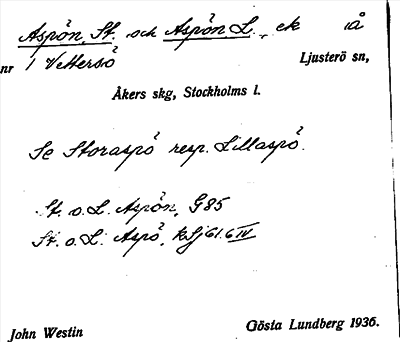 Aspön, St. och Aspön, L., ek på
nr 1 Vettersö Ljusterö sn,
Åkers skg, Stockholms l.
Se Storaspö resp. Lillaspö.
St. o. L. Aspön, G85
St. o. L. Aspö, kSj61.6 IV
John Westin Gösta Lundberg 1936.